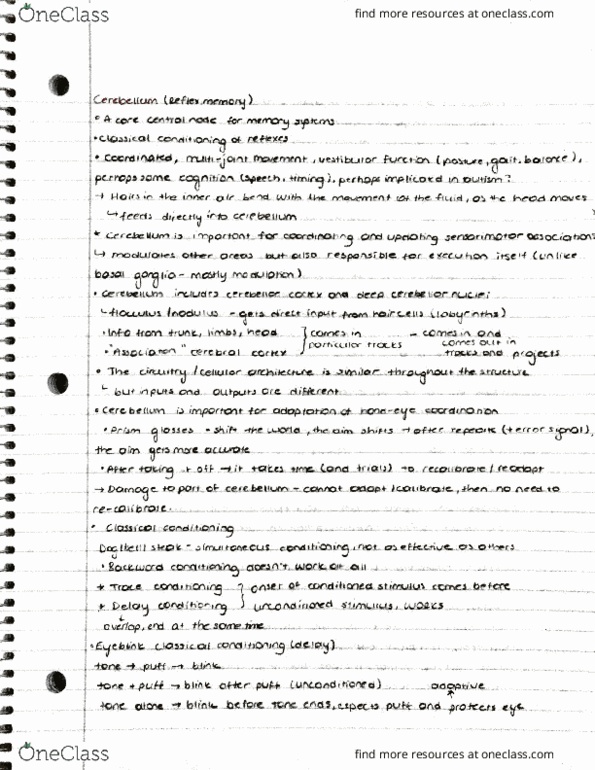 OneClass
find more resources at oneclass.com
Cerebellum (Reflex memory)
• A core central node for memory systems
• Classical conditioning of reflexes
• Coordinated, multi-joint movement, vestibular function (posture, gait, balance),
perhaps some cognition (speech, timing), perhaps implicated in autism?
→ Hairs in the inner air bend with the movement of the fluid, as the head moves
↳ feeds directly into cerebellum
* Cerebellum is important for coordinating and updating sensorimotor associations
↳ modulates other areas but also responsible for execution itself (unlike
basal ganglia - mostly modulation)
• Cerebellum includes cerebellar cortex and deep cerebellar nuclei:
↳ flocculus/nodulus - gets direct input from hair cells (labyrinths)
• Info from trunk, limbs, head } comes in - comes in and
• "Association" cerebral cortex particular tracks comes out in
tracks and projects
• The circuitry/cellular architecture is similar throughout the structure
↳ but inputs and outputs are different
• Cerebellum is important for adaptation of hand-eye coordination
• Prism glasses - shift the world, the aim shifts → after repeats (+error signal),
the aim gets more accurate
• After taking it off → it takes time (and trials) to recalibrate/readapt
→ Damage to part of cerebellum - cannot adapt/calibrate, then no need to
re-calibrate.
• Classical conditioning
Dog|bell| steak - simultaneous conditioning, not as effective as others
• Backward conditioning doesn't work at all
* Trace conditioning } onset of conditioned stimulus comes before
* Delay conditioning unconditioned stimulus, works
overlap, end at the same time
• Eyeblink classical conditioning (delay)
tone → puff → blink
tone + puff → blink after puff (unconditioned) adaptive
tone alone → blink before tone ends, expects puff and protects eye
OneClass
find more resources at oneclass.com